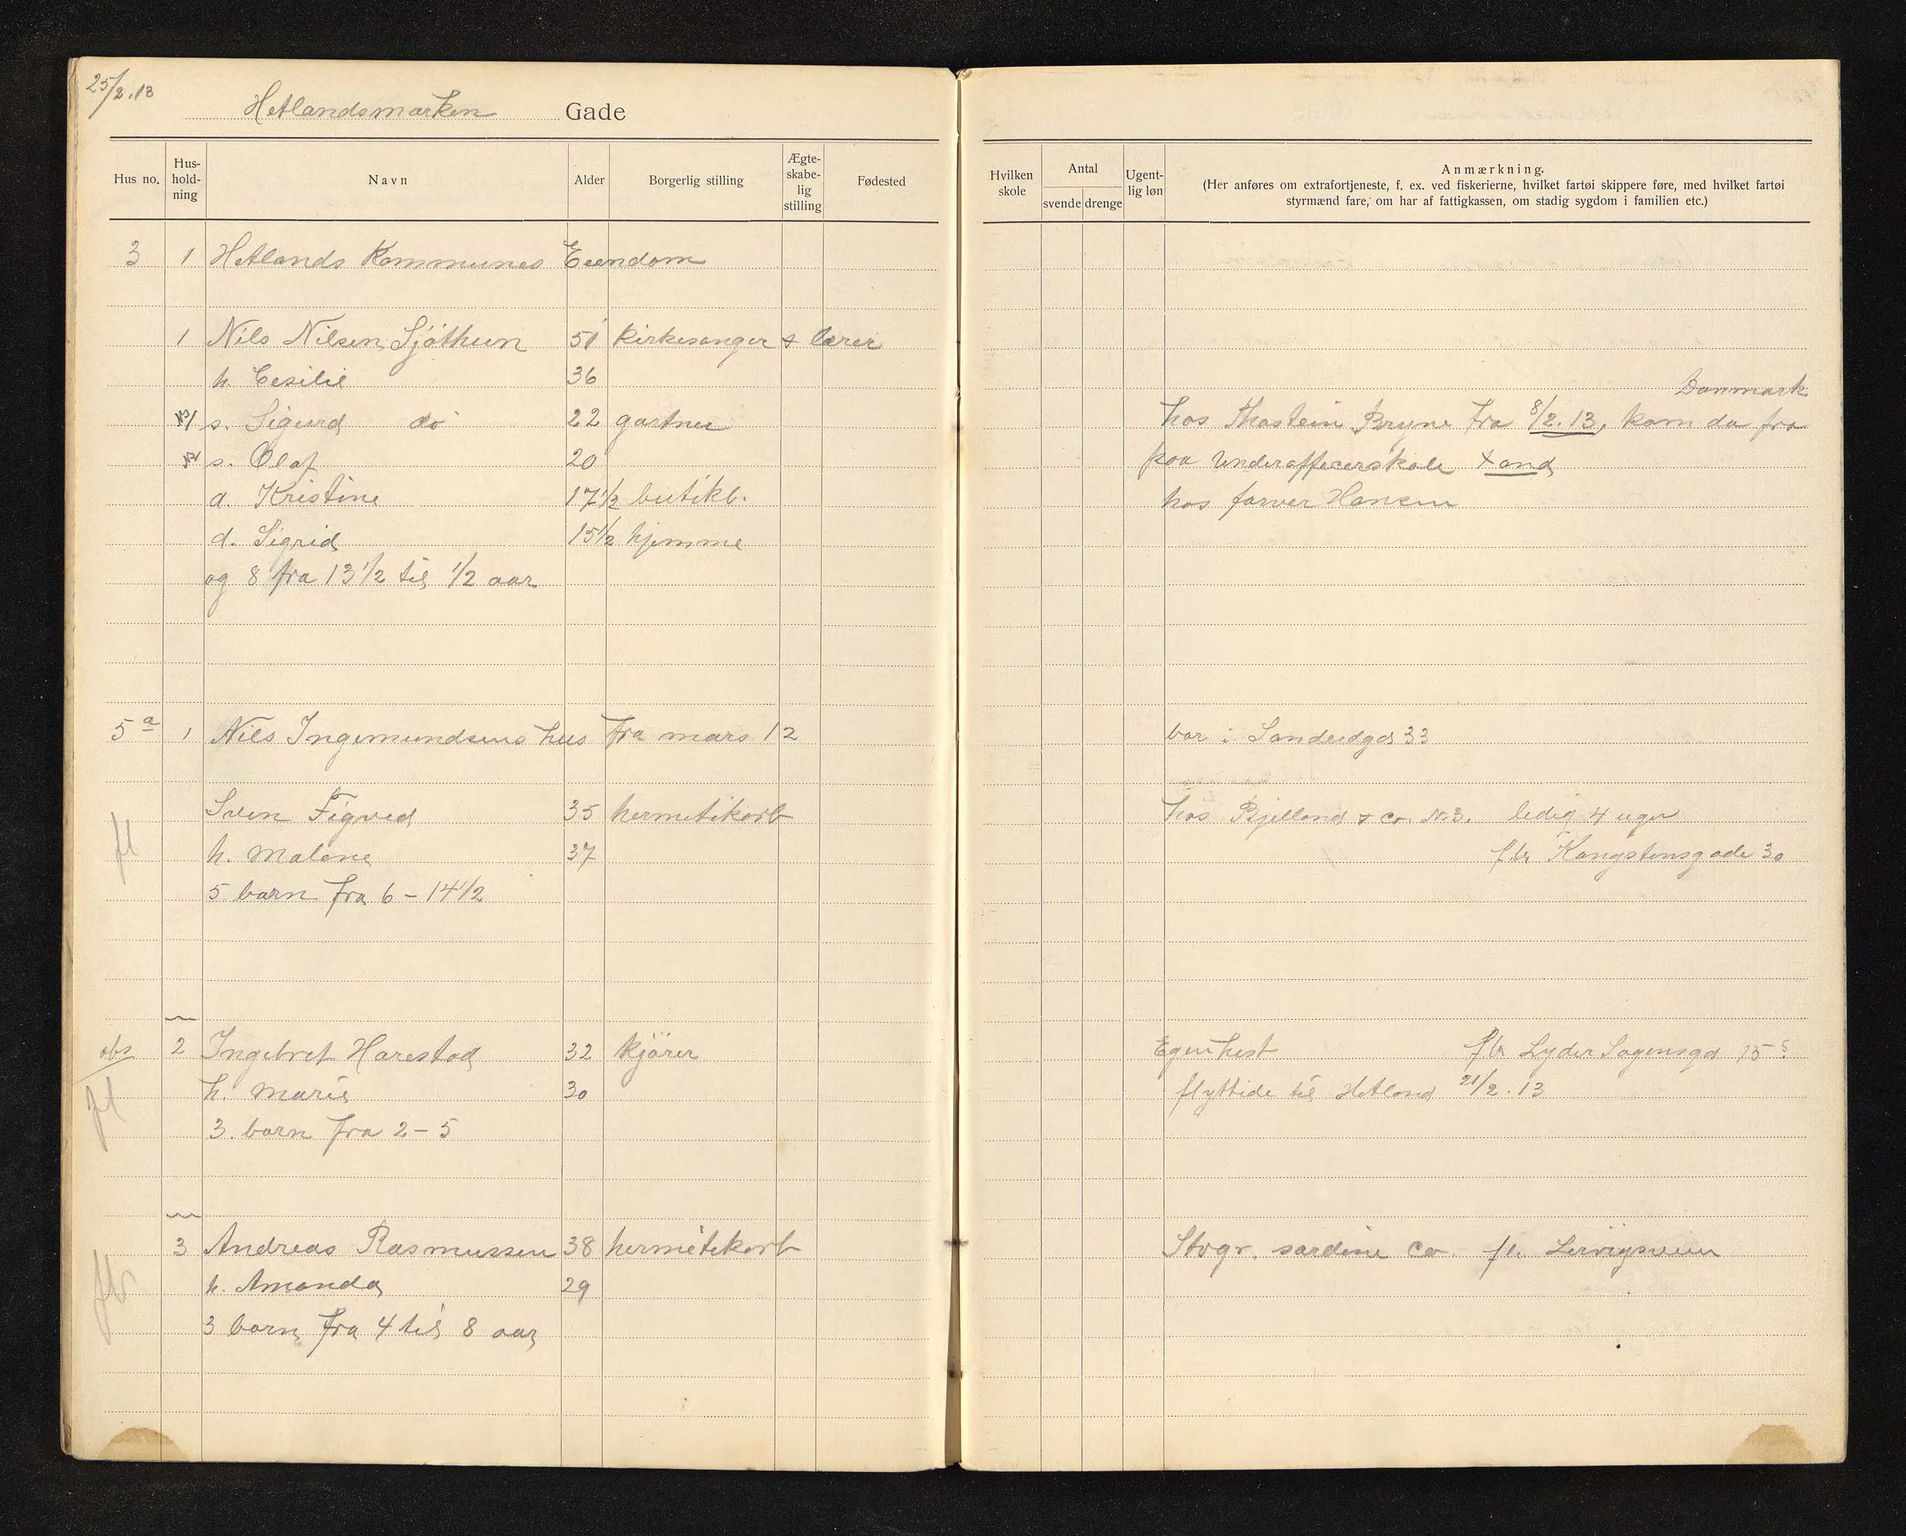 25/2.13
Hetlandsmarken Gade
Hus no. Hus-hold-ning Navn Alder Borgerlig stilling Ægte-skabe-lig stilling Fødested
Hvilken skole Antal svende drenge Ugent-lig løn Anmærkning.
(Her anføres om extrafortjeneste, f. ex. ved fiskerierne, hvilket fartøi skippere føre, med hvilket fartøi
styrmænd fare, om har af fattigkassen, om stadig sygdom i familien etc.)
3 1 Hetlands Kommunes Eiendom
1 Nils Nilsen Sjöthun 51 kirkesanger & lærer
h. Cesilie 36
Danmark
s. Sigurd do 22 gartner hos Thostein Bryne fra 8/2.13, kom da fra
s. Olaf 20 paa Underofficerskole
d. Kristine 17 1/2 butikb. hos farver Hansen
d. Sigrid 15 1/2 hjemme
og 8 fra 13 1/2 til 1/2 aar
5a 1 Nils Ingemundsens hus fra mars 12 bor i 33
fl Sven Figved 35 hermetikarb hos Bjelland & co. No 3. ledig 4 uger
h. Malene 37 f br Kongstensgade 30
5 barn fra 6 - 14 1/2
obs 2 Ingebret Harestad 32 kjörer Egen hest f br Lyder Sagensgd 15
fl h. Marie 30 flyttide til Hetland 21/2.13
3 barn fra 2 - 5
3 Andreas Rasmussen 38 hermetikarb Stvgr. sardine Co.
h. Amanda 29
3 barn fra 4 til 8 aar